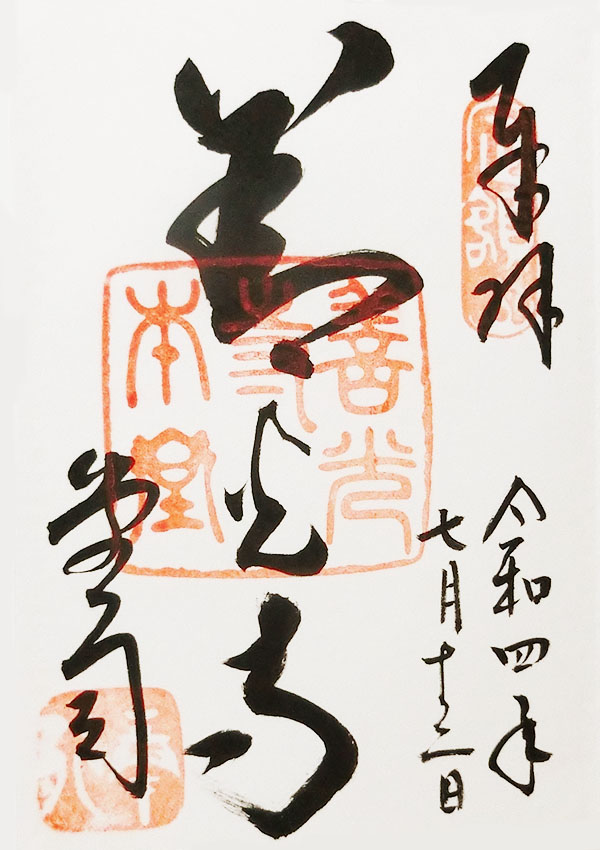 奉拝
令和四年
七月十三日
善光寺
堂司
善光
本堂